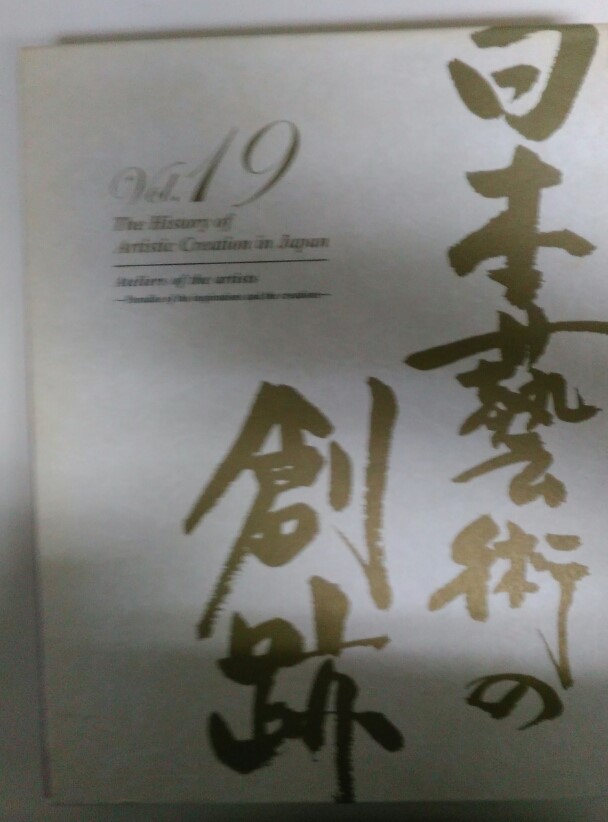 日本藝術の
創跡
Vol.19
The History of
Artistic Creation in Japan
Ateliers of the artists